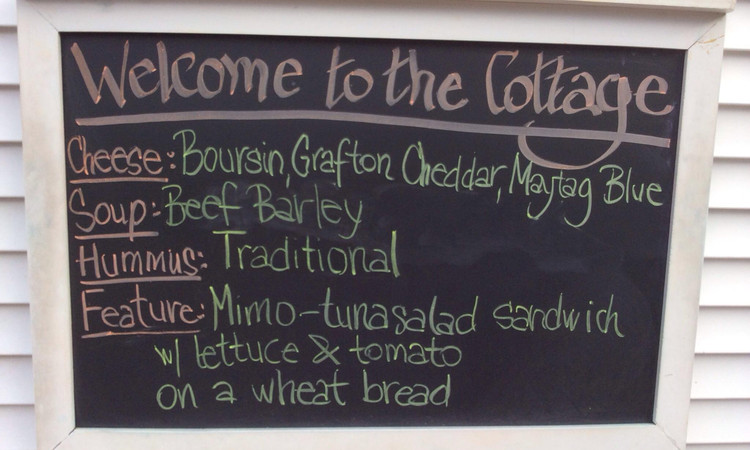 Welcome to the Cottage
Cheese: Boursin, Grafton Cheddar, Maytag Blue
Soup: Beef Barley
Hummus: Traditional
Feature: Mimo-tuna salad sandwich
w/ lettuce & tomato
on a wheat bread